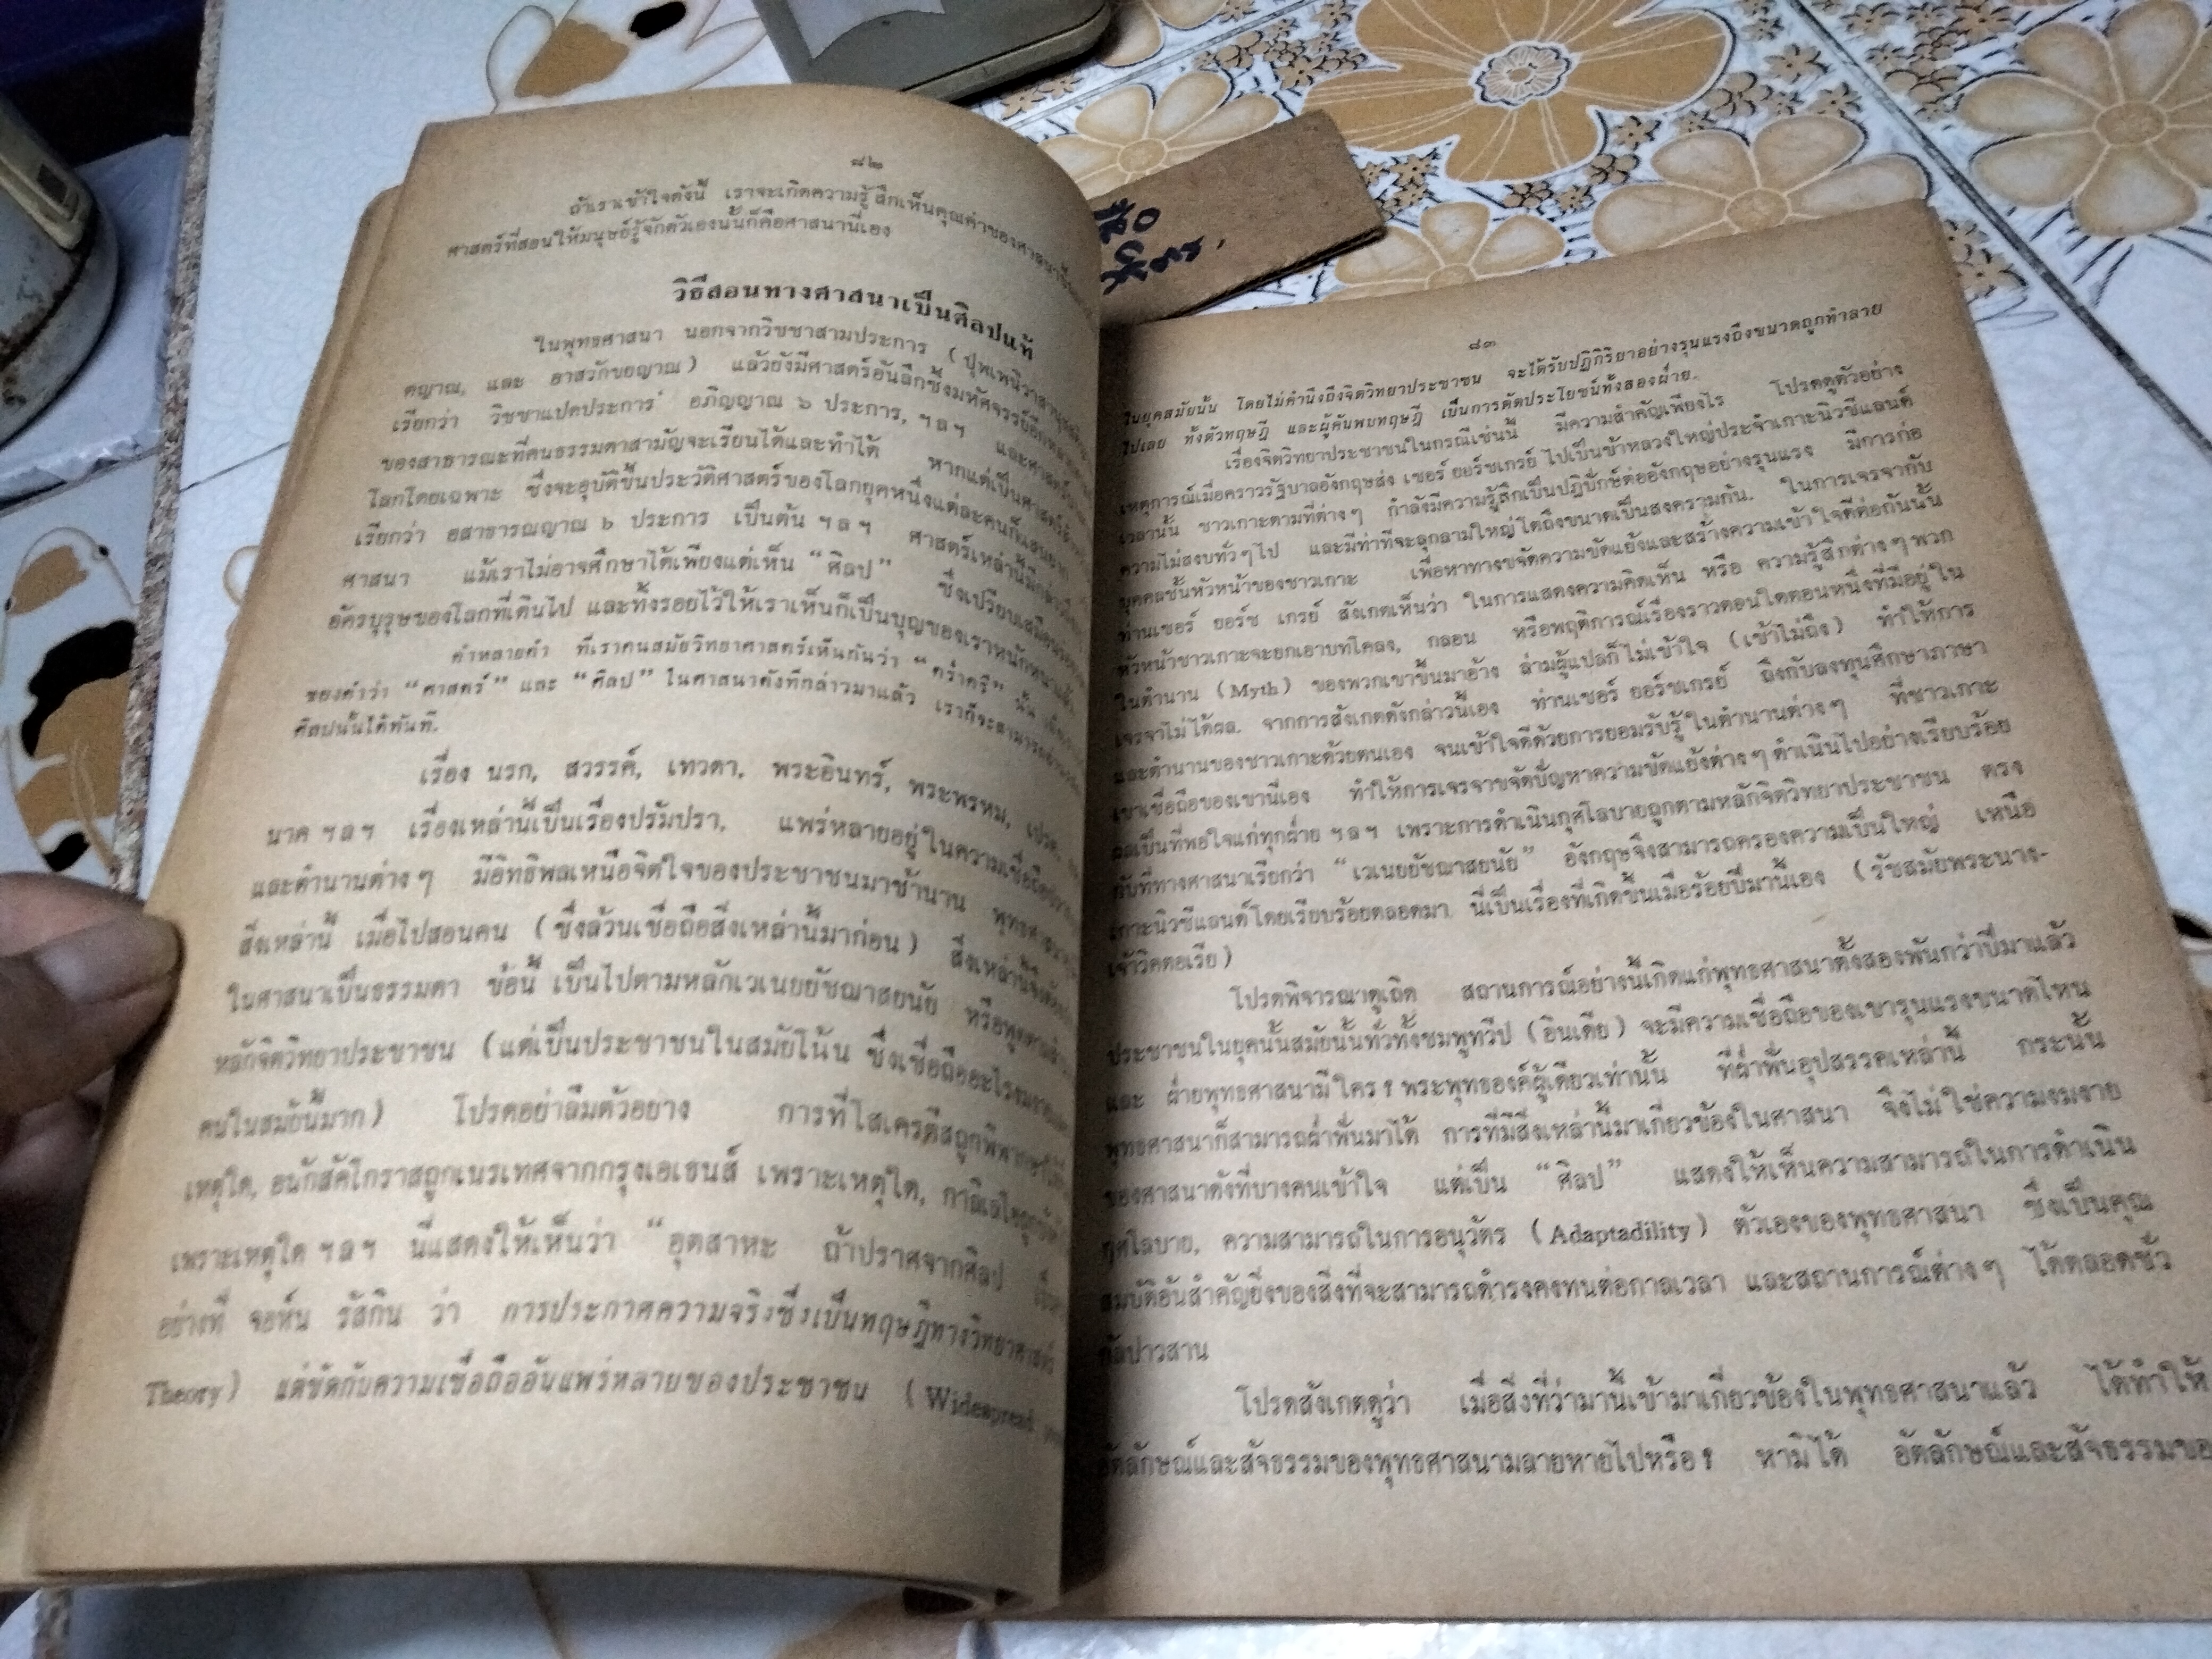 ๘๒
ถ้าเราเข้าใจดังนี้ เราจะเกิดความรู้สึกเห็นคุณค่าของศาสนา
ศาสตร์ที่สอนให้มนุษย์รู้จักตัวเองนั้นก็คือศาสนานี่เอง
วิธีสอนทางศาสนาเป็นศิลปแท้
ในพุทธศาสนา นอกจากวิชชาสามประการ (ปุพเพนิวาสานุสสติ
ตญาณ, และ อาสวักขยญาณ) แล้วยังมีศาสตร์อันลึกซึ้งมหัศจรรย์อีก
เรียกว่า วิชชาแปดประการ อภิญญาณ ๖ ประการ, ฯลฯ และศาสตร์
ของสาธารณะที่คนธรรมดาสามัญจะเรียนได้และทำได้ หากแต่เป็นศาสตร์
โลกโดยเฉพาะ ซึ่งจะอุบัติขึ้นประวัติศาสตร์ของโลกยุคหนึ่งแต่ละคนก็
เรียกว่า อสาธารณญาณ ๖ ประการ เป็นต้น ฯลฯ ศาสตร์เหล่านี้มี
ศาสนา แม้เราไม่อาจศึกษาได้เพียงแต่เห็น “ศิลป” ซึ่งเปรียบเสมือน
อัครบุรุษของโลกที่เดินไป และทิ้งรอยไว้ให้เราเห็นก็เป็นบุญของเราหนักหนาแล้ว
คำหลายคำ ที่เราคนสมัยวิทยาศาสตร์เห็นกันว่า “คร่ำครึ” นั้น
ของคำว่า “ศาสตร์” และ “ศิลป” ในศาสนาดังที่กล่าวมาแล้ว เราก็จะสามารถ
ศิลปนั้นได้ทันที.
เรื่อง นรก, สวรรค์, เทวดา, พระอินทร์, พระพรหม, เปรต,
นาค ฯลฯ เรื่องเหล่านี้เป็นเรื่องปรัมปรา, แพร่หลายอยู่ในความเชื่อถือ
และตำนานต่างๆ มีอิทธิพลเหนือจิตใจของประชาชนมาช้านาน พุทธศาสนา
สิ่งเหล่านี้ เมื่อไปสอนคน (ซึ่งล้วนเชื่อถือสิ่งเหล่านี้มาก่อน) สิ่งเหล่านี้จึง
ในศาสนาเป็นธรรมดา ข้อนี้ เป็นไปตามหลักเวเนยยัชฌาสยนัย หรือพูดตาม
หลักจิตวิทยาประชาชน (แต่เป็นประชาชนในสมัยโน้น ซึ่งเชื่อถืออะไร
คนในสมัยนี้มาก) โปรดอย่าลืมตัวอย่าง การที่โสเครตีสถูกพิพากษา
เหตุใด, อนักสัคโกราสถูกเนรเทศจากกรุงเอเธนส์ เพราะเหตุใด, กาลิเลโอถูก
เพราะเหตุใด ฯลฯ นี่แสดงให้เห็นว่า “อุตสาหะ ถ้าปราศจากศิลป
อย่างที่ จอห์น รัสกิน ว่า การประกาศความจริงซึ่งเป็นทฤษฎีทางวิทยาศาสตร์
Theory) แต่ขัดกับความเชื่อถืออันแพร่หลายของประชาชน (Widespread
๘๓
ในยุคสมัยนั้น โดยไม่คำนึงถึงจิตวิทยาประชาชน จะได้รับปฏิกิริยาอย่างรุนแรงถึงขนาดถูกทำลาย
ไปเลย ทั้งตัวทฤษฎี และผู้ค้นพบทฤษฎี เป็นการตัดประโยชน์ทั้งสองฝ่าย.
เรื่องจิตวิทยาประชาชนในกรณีเช่นนี้ มีความสำคัญเพียงไร โปรดดูตัวอย่าง
เหตุการณ์เมื่อคราวรัฐบาลอังกฤษส่ง เซอร์ ยอร์ชเกรย์ ไปเป็นข้าหลวงใหญ่ประจำเกาะนิวซีแลนด์
เวลานั้น ชาวเกาะตามที่ต่างๆ กำลังมีความรู้สึกเป็นปฏิปักษ์ต่ออังกฤษอย่างรุนแรง มีการก่อ
ความไม่สงบทั่วๆไป และมีท่าที่จะลุกลามใหญ่โตถึงขนาดเป็นสงครามกัน. ในการเจรจากับ
บุคคลชั้นหัวหน้าของชาวเกาะ เพื่อหาทางขจัดความขัดแย้งและสร้างความเข้าใจดีต่อกันนั้น
ท่านเซอร์ ยอร์ช เกรย์ สังเกตเห็นว่า ในการแสดงความคิดเห็น หรือ ความรู้สึกต่างๆ พวก
หัวหน้าชาวเกาะจะยกเอาบทโคลง, กลอน หรือพฤติการณ์เรื่องราวตอนใดตอนหนึ่งที่มีอยู่ใน
ในตำนาน (Myth) ของพวกเขาขึ้นมาอ้าง ล่ามผู้แปลก็ไม่เข้าใจ (เข้าไม่ถึง) ทำให้การ
เจรจาไม่ได้ผล. จากการสังเกตดังกล่าวนี้เอง ท่านเซอร์ ยอร์ชเกรย์ ถึงกับลงทุนศึกษาภาษา
และตำนานของชาวเกาะด้วยตนเอง จนเข้าใจดีด้วยการยอมรับรู้ในตำนานต่างๆ ที่ชาวเกาะ
เขาเชื่อถือของเขานี่เอง ทำให้การเจรจาขจัดปัญหาความขัดแย้งต่างๆ ดำเนินไปอย่างเรียบร้อย
ผลเป็นที่พอใจแก่ทุกฝ่าย ฯลฯ เพราะการดำเนินกุศโลบายถูกตามหลักจิตวิทยาประชาชน ตรง
กับที่ทางศาสนาเรียกว่า “เวเนยยัชฌาสยนัย” อังกฤษจึงสามารถครองความเป็นใหญ่ เหนือ
เกาะนิวซีแลนด์โดยเรียบร้อยตลอดมา นี่เป็นเรื่องที่เกิดขึ้นเมื่อร้อยปีมานี้เอง (รัชสมัยพระนาง-
เจ้าวิคตอเรีย)
โปรดพิจารณาดูเถิด สถานการณ์อย่างนี้เกิดแก่พุทธศาสนาตั้งสองพันกว่าปีมาแล้ว
ประชาชนในยุคนั้นสมัยนั้นทั่วทั้งชมพูทวีป (อินเดีย) จะมีความเชื่อถือของเขารุนแรงขนาดไหน
และ ฝ่ายพุทธศาสนามีใคร? พระพุทธองค์ผู้เดียวเท่านั้น ที่ฝ่าฟันอุปสรรคเหล่านี้ กระนั้น
พุทธศาสนาก็สามารถฝ่าฟันมาได้ การที่มีสิ่งเหล่านี้มาเกี่ยวข้องในศาสนา จึงไม่ใช่ความงมงาย
ของศาสนาดังที่บางคนเข้าใจ แต่เป็น “ศิลป” แสดงให้เห็นความสามารถในการดำเนิน
กุศโลบาย, ความสามารถในการอนุวัตร (Adaptadility) ตัวเองของพุทธศาสนา ซึ่งเป็นคุณ
สมบัติอันสำคัญยิ่งของสิ่งที่จะสามารถดำรงคงทนต่อกาลเวลา และสถานการณ์ต่างๆ ได้ตลอดชั่ว
กัลปาวสาน
โปรดสังเกตดูว่า เมื่อสิ่งที่ว่ามานี้เข้ามาเกี่ยวข้องในพุทธศาสนาแล้ว ได้ทำให้
อัตลักษณ์และสัจธรรมของพุทธศาสนามลายหายไปหรือ? หามิได้ อัตลักษณ์และสัจธรรมขอ